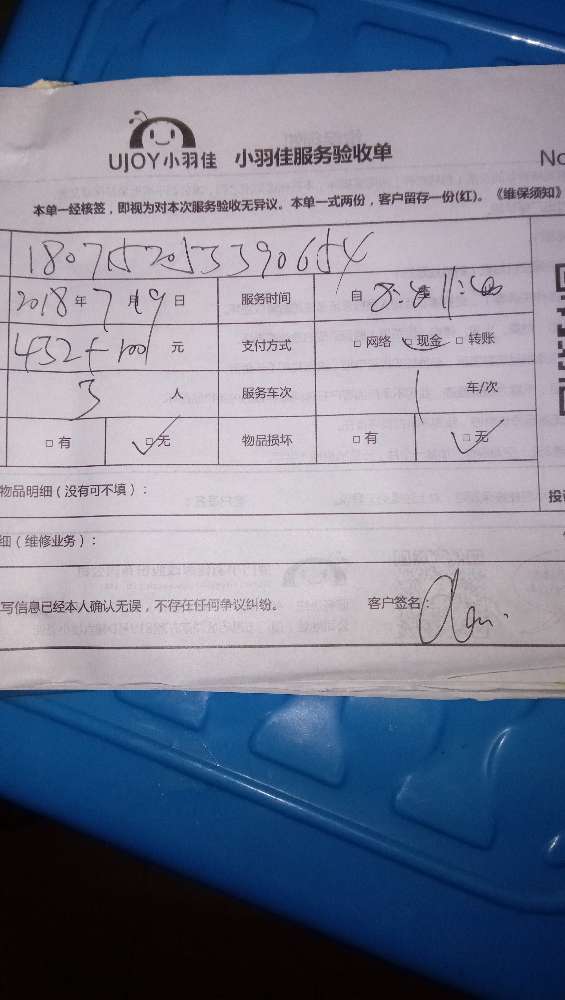 UJOY小羽佳 小羽佳服务验收单
No
本单一经核签，即视为对本次服务验收无异议。本单一式两份，客户留存一份(红)。《维保须知》
2018年7月19日 服务时间 自
432+100元 支付方式 □网络 □现金 □转账
3人 服务车次 1车/次
□有 □无 物品损坏 □有 □无
物品明细（没有可不填）：
投
细（维修业务）：
写信息已经本人确认无误，不存在任何争议纠纷。 客户签名：